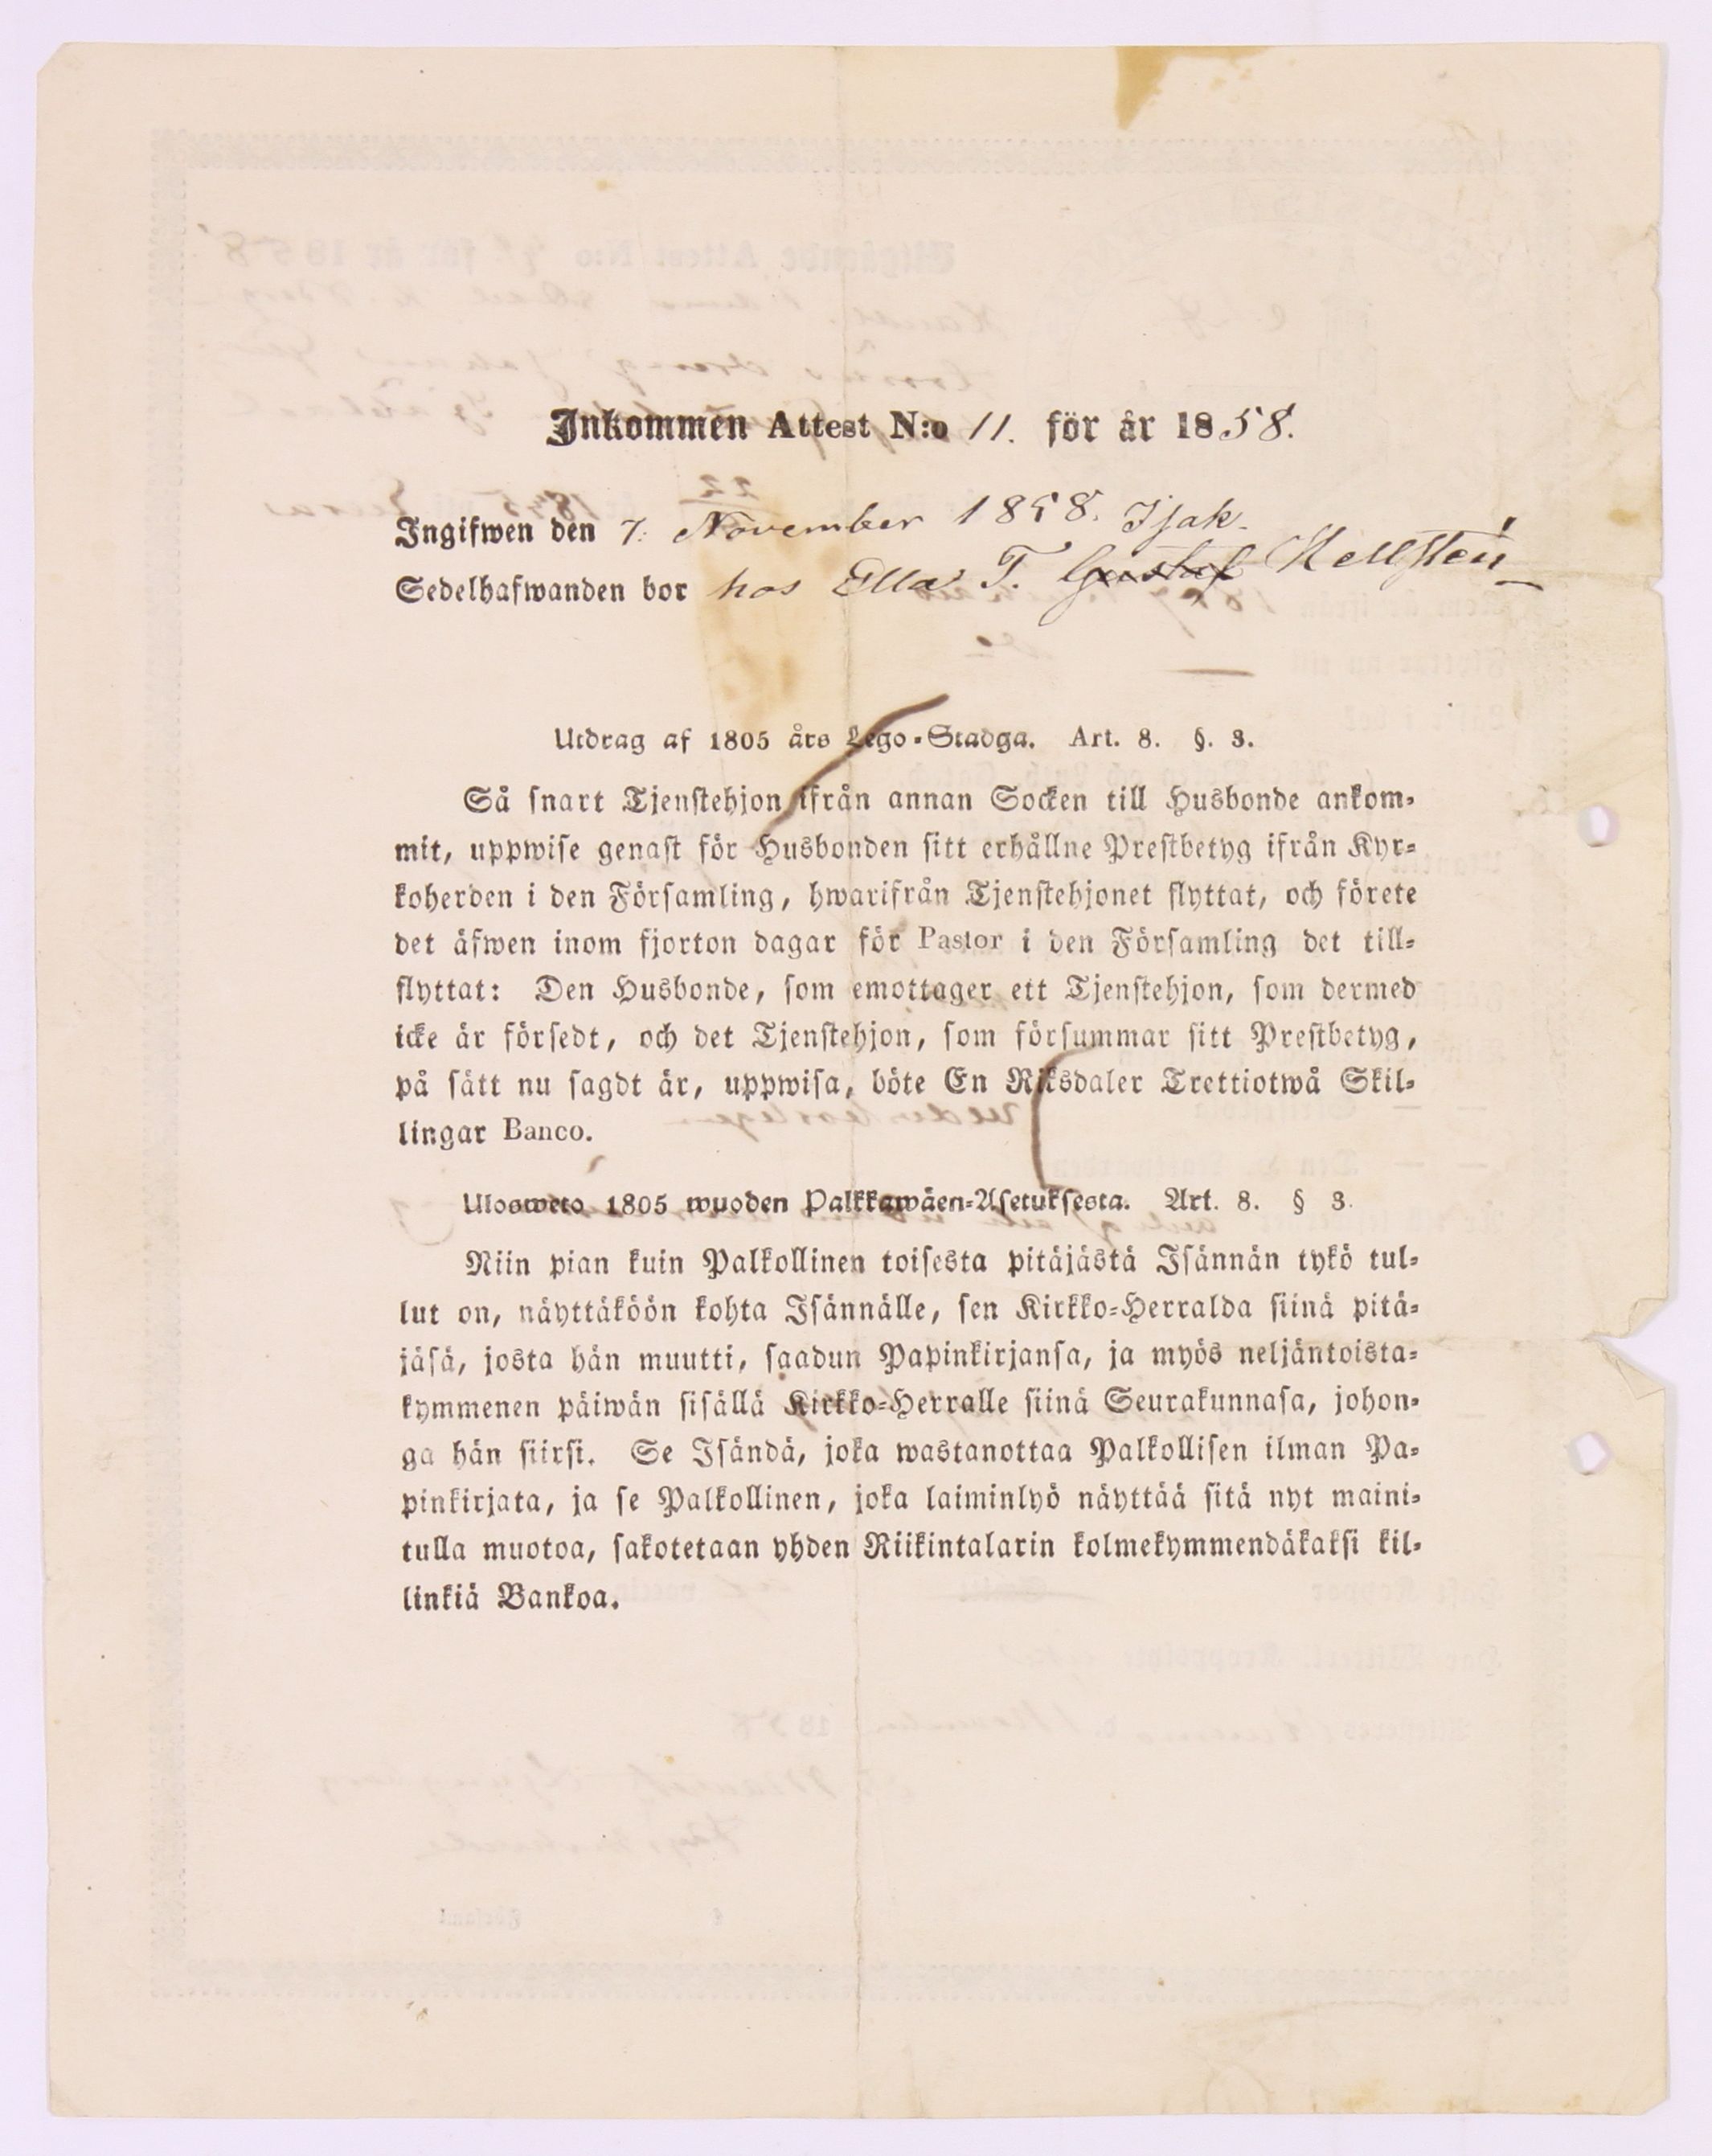 Inkommen Attest N:o 11. för år 1858.
Ingifwen den 7. November 1858. Isak
Sedelhafwanden bor hos Ella T. Gustaf Hellsten
Utdrag af 1805 års Lego-Stadga. Art. 8. §. 3.
Så snart Tjenstehjon ifrån annan Socken till Husbonde ankom-
mit, uppwise genast för Husbonden sitt erhållne Prestbetyg ifrån Kyr-
koherden i den Församling, hwarifrån Tjenstehjonet flyttat, och förete
det äfwen inom fjorton dagar för Pastor i den Församling det till-
flyttat: Den Husbonde, som emottager ett Tjenstehjon, som dermed
icke är försedt, och det Tjenstehjon, som försummar sitt Prestbetyg,
på sätt nu sagdt är, uppwisa, böte En Riksdaler Trettiotwå Skil-
lingar Banco.
Ulosweto 1805 wuoden Palkkawäen-Asetuksesta. Art. 8. § 3.
Niin pian kuin Palkollinen toisesta pitäjästä Isännän tykö tul-
lut on, näyttäköön kohta Isännälle, sen Kirkko-Herralda siinä pitä-
jäsä, josta hän muutti, saadun Papinkirjansa, ja myös neljäntoista-
kymmenen päiwän sisällä Kirkko-Herralle siinä Seurakunnasa, johon-
ga hän siirsi. Se Isändä, joka wastanottaa Palkollisen ilman Pa-
pinkirjata, ja se Palkollinen, joka laiminlyö näyttää sitä nyt maini-
tulla muotoa, sakotetaan yhden Riikintalarin kolmekymmendäkaksi kil-
linkiä Bankoa.